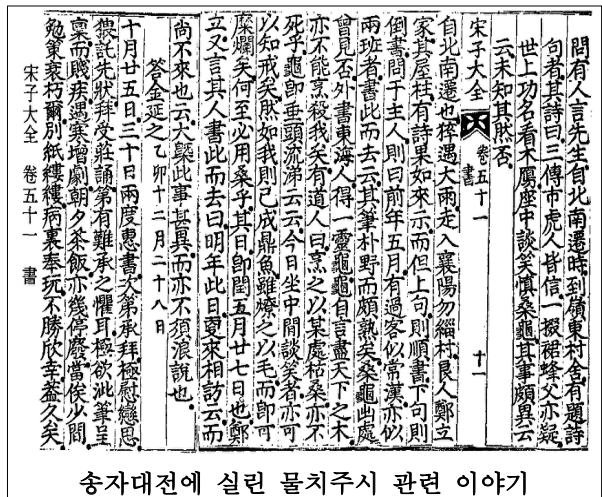 問有人言先生自北南遷時到嶺東村舍有題詩
句者其詩曰三傳市虎人皆信一掇裙蜂父亦疑
世上功名看木鴈座中談笑愼桑龜其事頗異云
云未知其然否
宋子大全 卷五十一 書 十一
自北南遷也猝遇大雨走入襄陽勿緇村良人鄭立
家其屋柱有詩果如來示而但上句則順書下句則
倒書問于主人則曰前年五月有過客似常漢亦似
兩班者書此而去云其筆朴野而頗熟矣桑龜出處
曾見否外書東海人得一靈龜龜自言盡天下之木
亦不能烹殺我矣有道人曰烹之以某處枯桑亦不
死乎龜卽垂頭流涕云云今日坐中間談笑者亦可
以知戒矣然如我則已成鼎魚雖燎之以毛而卽可
糜爛矣何至必用桑乎其日卽閏五月廿七日也鄭
立又言其人書此而去曰明年此日更來相訪云而
尚不來也云大槩此事甚異而亦不須浪說也
答金延之 乙卯十二月二十八日
十月廿五日三十日兩度惠書次第承拜極慰戀思
猥託先狀拜受莊誦第有難承之懼耳極欲泚筆呈
稟而賤疾遇寒增劇朝夕茶飯亦幾停廢當俟少間
勉策衰朽爾別紙縷縷病裏奉玩不勝欣幸蓋久矣
宋子大全 卷五十一 書
송자대전에 실린 물치주시 관련 이야기